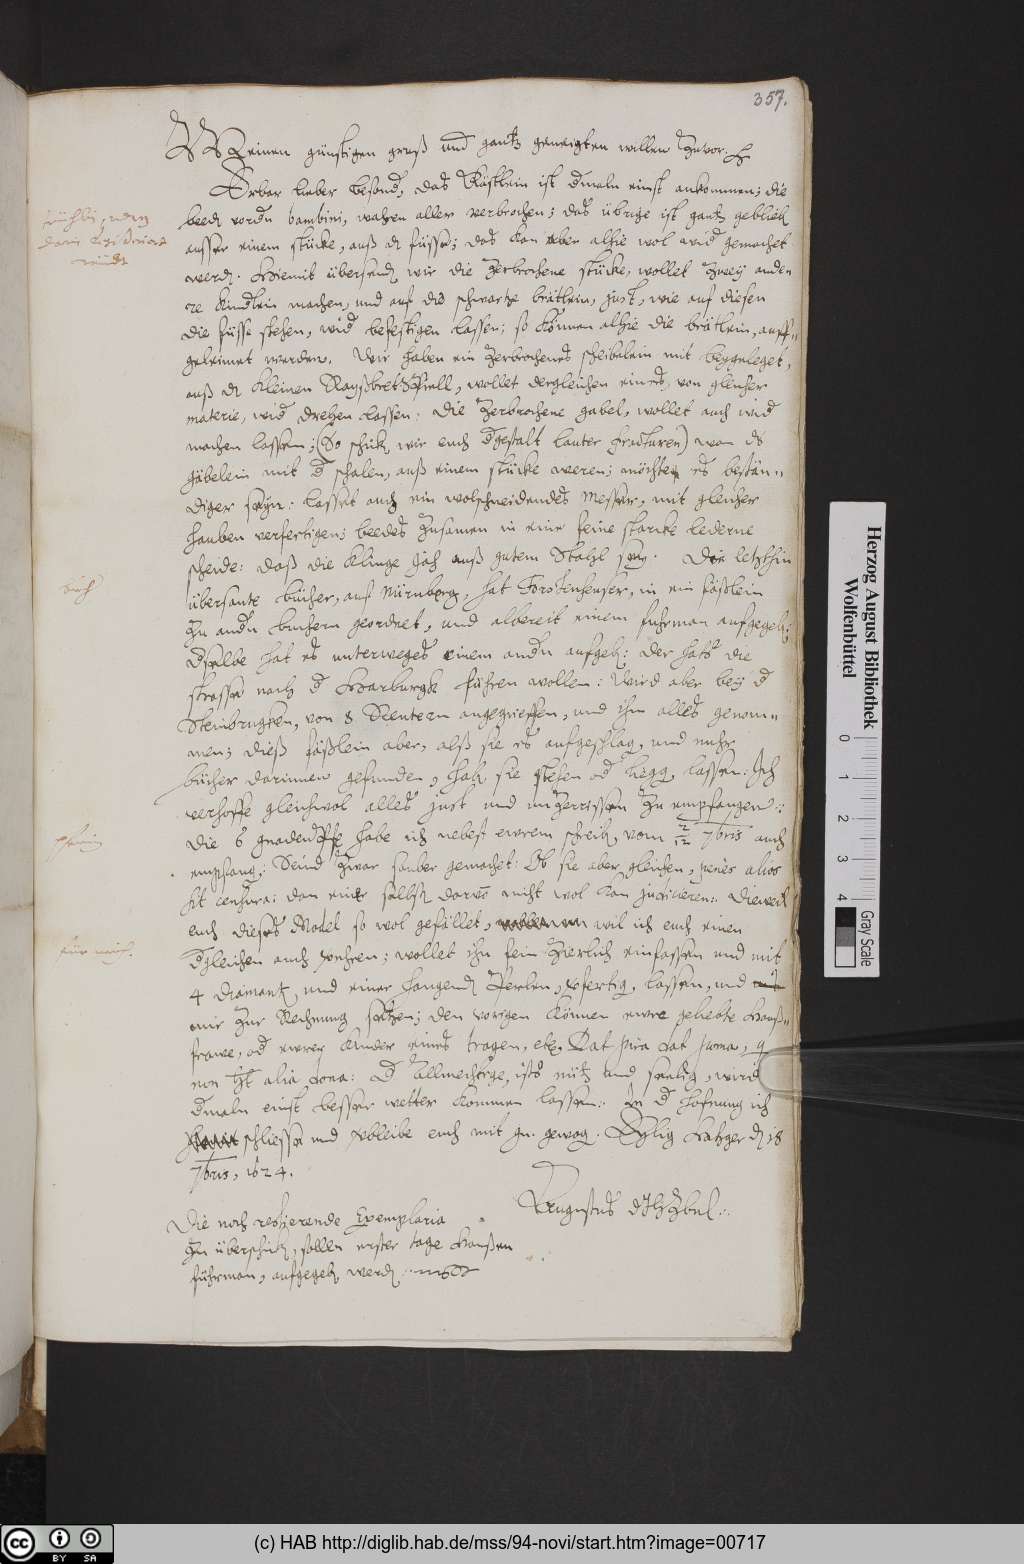 357.
Meinen günstigen gruß und gantz geneigten willen zuvor.
Erbar lieber besond, das Kästlein ist dmaln einst ankommen; die
beed vordn bambini, wahren aller verbrochen; das übrige ist gantz geblieb
ausser einem stücke, auß d füsse; das kan aber alhie wol wid gemachet
werd. Hiemit übersend wir die zerbrochene stücke, wollet zwey ande-
re Kindlein machen, und auf die schwartze brätlein, just, wie auf diesen
die füsse stehen, wid befestigen lassen; so können alhie die brätlein, auff-
geleimet werden. Wir haben ein zerbrochenes scheibelein mit beygeleget,
auß d kleinen Rayßbretspiell, wollet dergleichen eines, von gleicher
materie, wid drehen lassen: die zerbrochene gabel, wollet auch wid
machen lassen; (So schick wir euch dgestalt lauter fracturen) wan ds
gäbelein mit d schalen, auß einem stücke weren; möchte es bestän-
diger seyn: lasset auch ein wolschneidendes Messer, mit gleicher
hauben verfertigen; beedes zusamen in eine feine starcke lederne
scheide: daß die klinge Jah auß gutem Stahl sey. Die letzthin
übersante bücher, auß Nürnberg, hat Forstenheuser, in ein fäßlein
zu andn buchern geordnet, und albereit einem fuhrman aufgegeb;
dselbe hat es unterweges einem andn aufgeb: der hats die
strasse nach d Harburgk führen wollen: Wird aber bey d
Steinbrugken, von 8 Reutern angegrieffen, und ihm alles genom-
men; dieß fäßlein aber, alß sie es aufgeschlag, und nuhr
bücher darinnen gefunden, hab sie stehen od liegg lassen: Ich
verhoffe gleichwol alles just und unzerrissen zu empfangen:
die 6 gnadend habe ich nebest ewrem schreib vom 2/12 7bris auch
empfang: Seind zwar sauber gemachet: Ob sie aber gleichen, penes alios
sit censura: dan einer selbst darvon nicht wol kan judicieren: Dieweil
euch dieses Model so wol gefället, wil ich euch einen
dgleichen auch vehren; wollet ihn fein zierlich einfassen und mit
4 diamant, und einer hangend Perlen, vfertig lassen, und
mir zur Rechnung setzen; den vorigen können ewre geliebte Hauß-
frawe, od ewrer kinder eines tragen, etc. Dat pira dat poma, q
non ht alia dona: D Allmechtige, ists nütz und seelig, wird
dmaln einst besser wetter kommen lassen: In d Hofnung ich
schliesse und vbleibe euch mit gn. gewog. Eylig Hitzger d 18
7bris, 1624.
Augustus dJHZbul.
Die noch restierende Exemplaria
zu überschick, sollen erster tage Hansen
führman, aufgegeb werd.
büch
für mich.
Herzog August Bibliothek
Wolfenbüttel
0 1 2 3 4
Gray Scale
cc BY SA
(c) HAB http://diglib.hab.de/mss/94-novi/start.htm?image=00717